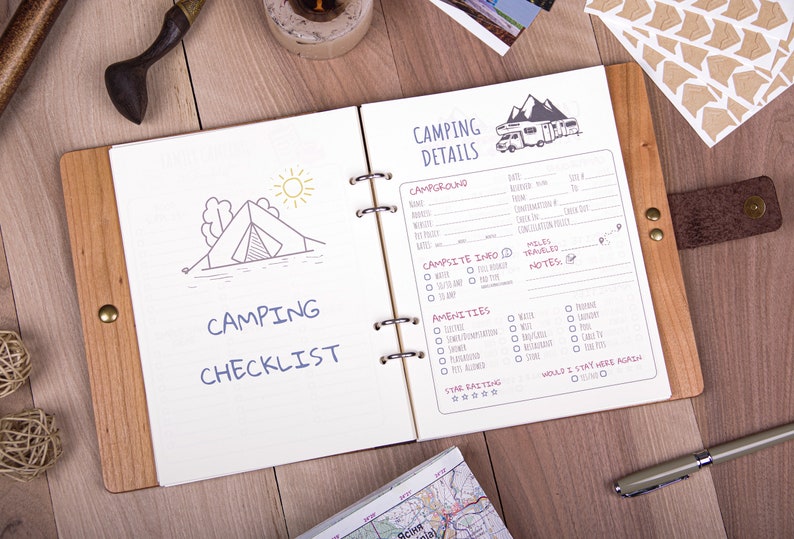 CAMPING
CHECKLIST
CAMPING
DETAILS
CAMPGROUND
Name:
Address:
Website:
Pet Policy:
Rates:
Date:
Site #
Reserved: Yes/No
From:
To
Confirmation #
Check In:
Check Out:
Concillation Policy:
CAMPSITE INFO
Water
50/30 Amp
30 Amp
Full Hookup
Pad Type
MILES
TRAVELED
NOTES:
AMENITIES
Electric
Sewer/Dumpstation
Shower
Playground
Pets Allowed
Water
Wifi
BBQ/Grill
Restaurant
Store
Propane
Laundry
Pool
Cable TV
Fire Pits
STAR RAITING
WOULD I STAY HERE AGAIN
Yes/No
Ясіня